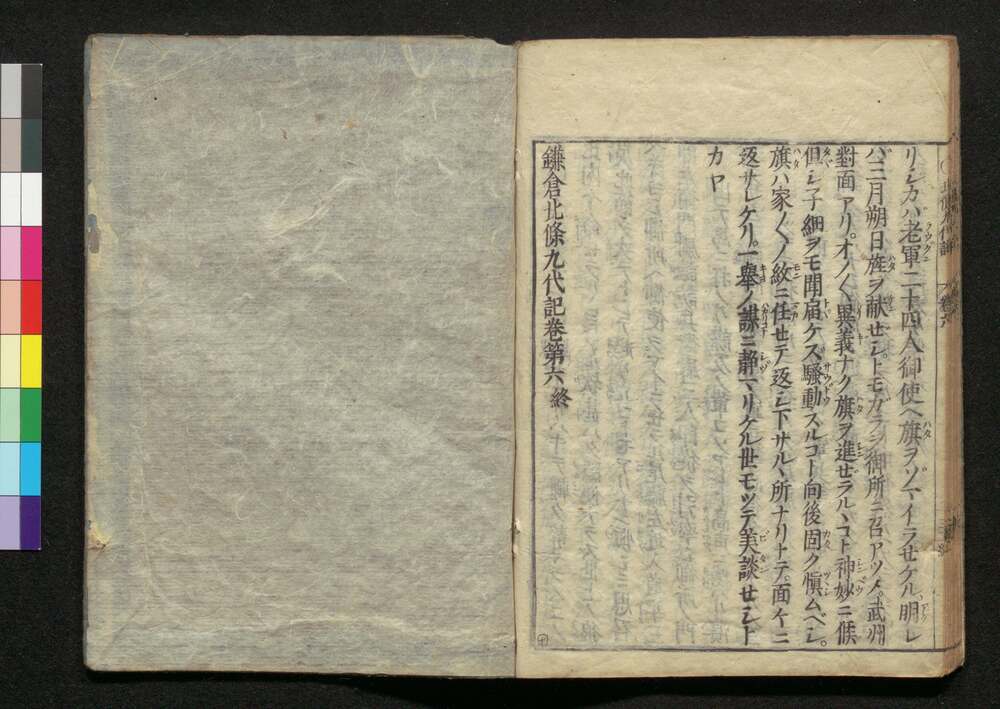 リシカハ老軍二十四人御使ヘ旗ヲソマイラセケル明レ
ハ三月朔日旌ヲ献セシトモカラシ御所ニ召アツメ武州
對面アリ。オノ〱異義ナク旗ヲ進セラルヽコト神妙ニ候
但シ子細ヲモ聞届ケス騒動スルコト向後固ク愼ムベシ。
旗ハ家ノ〱ノ紋ニ任セテ返シ下サルヽ所ナリトテ面々ニ
返サレケリ。一擧ノ謀ニ静マリケル世モツテ美談セシト
カヤ
鎌倉北條九代記巻第六終